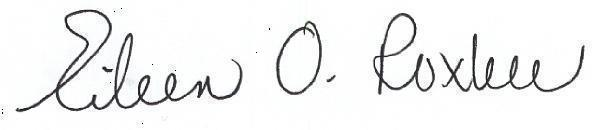 Eileen O. Roxbee